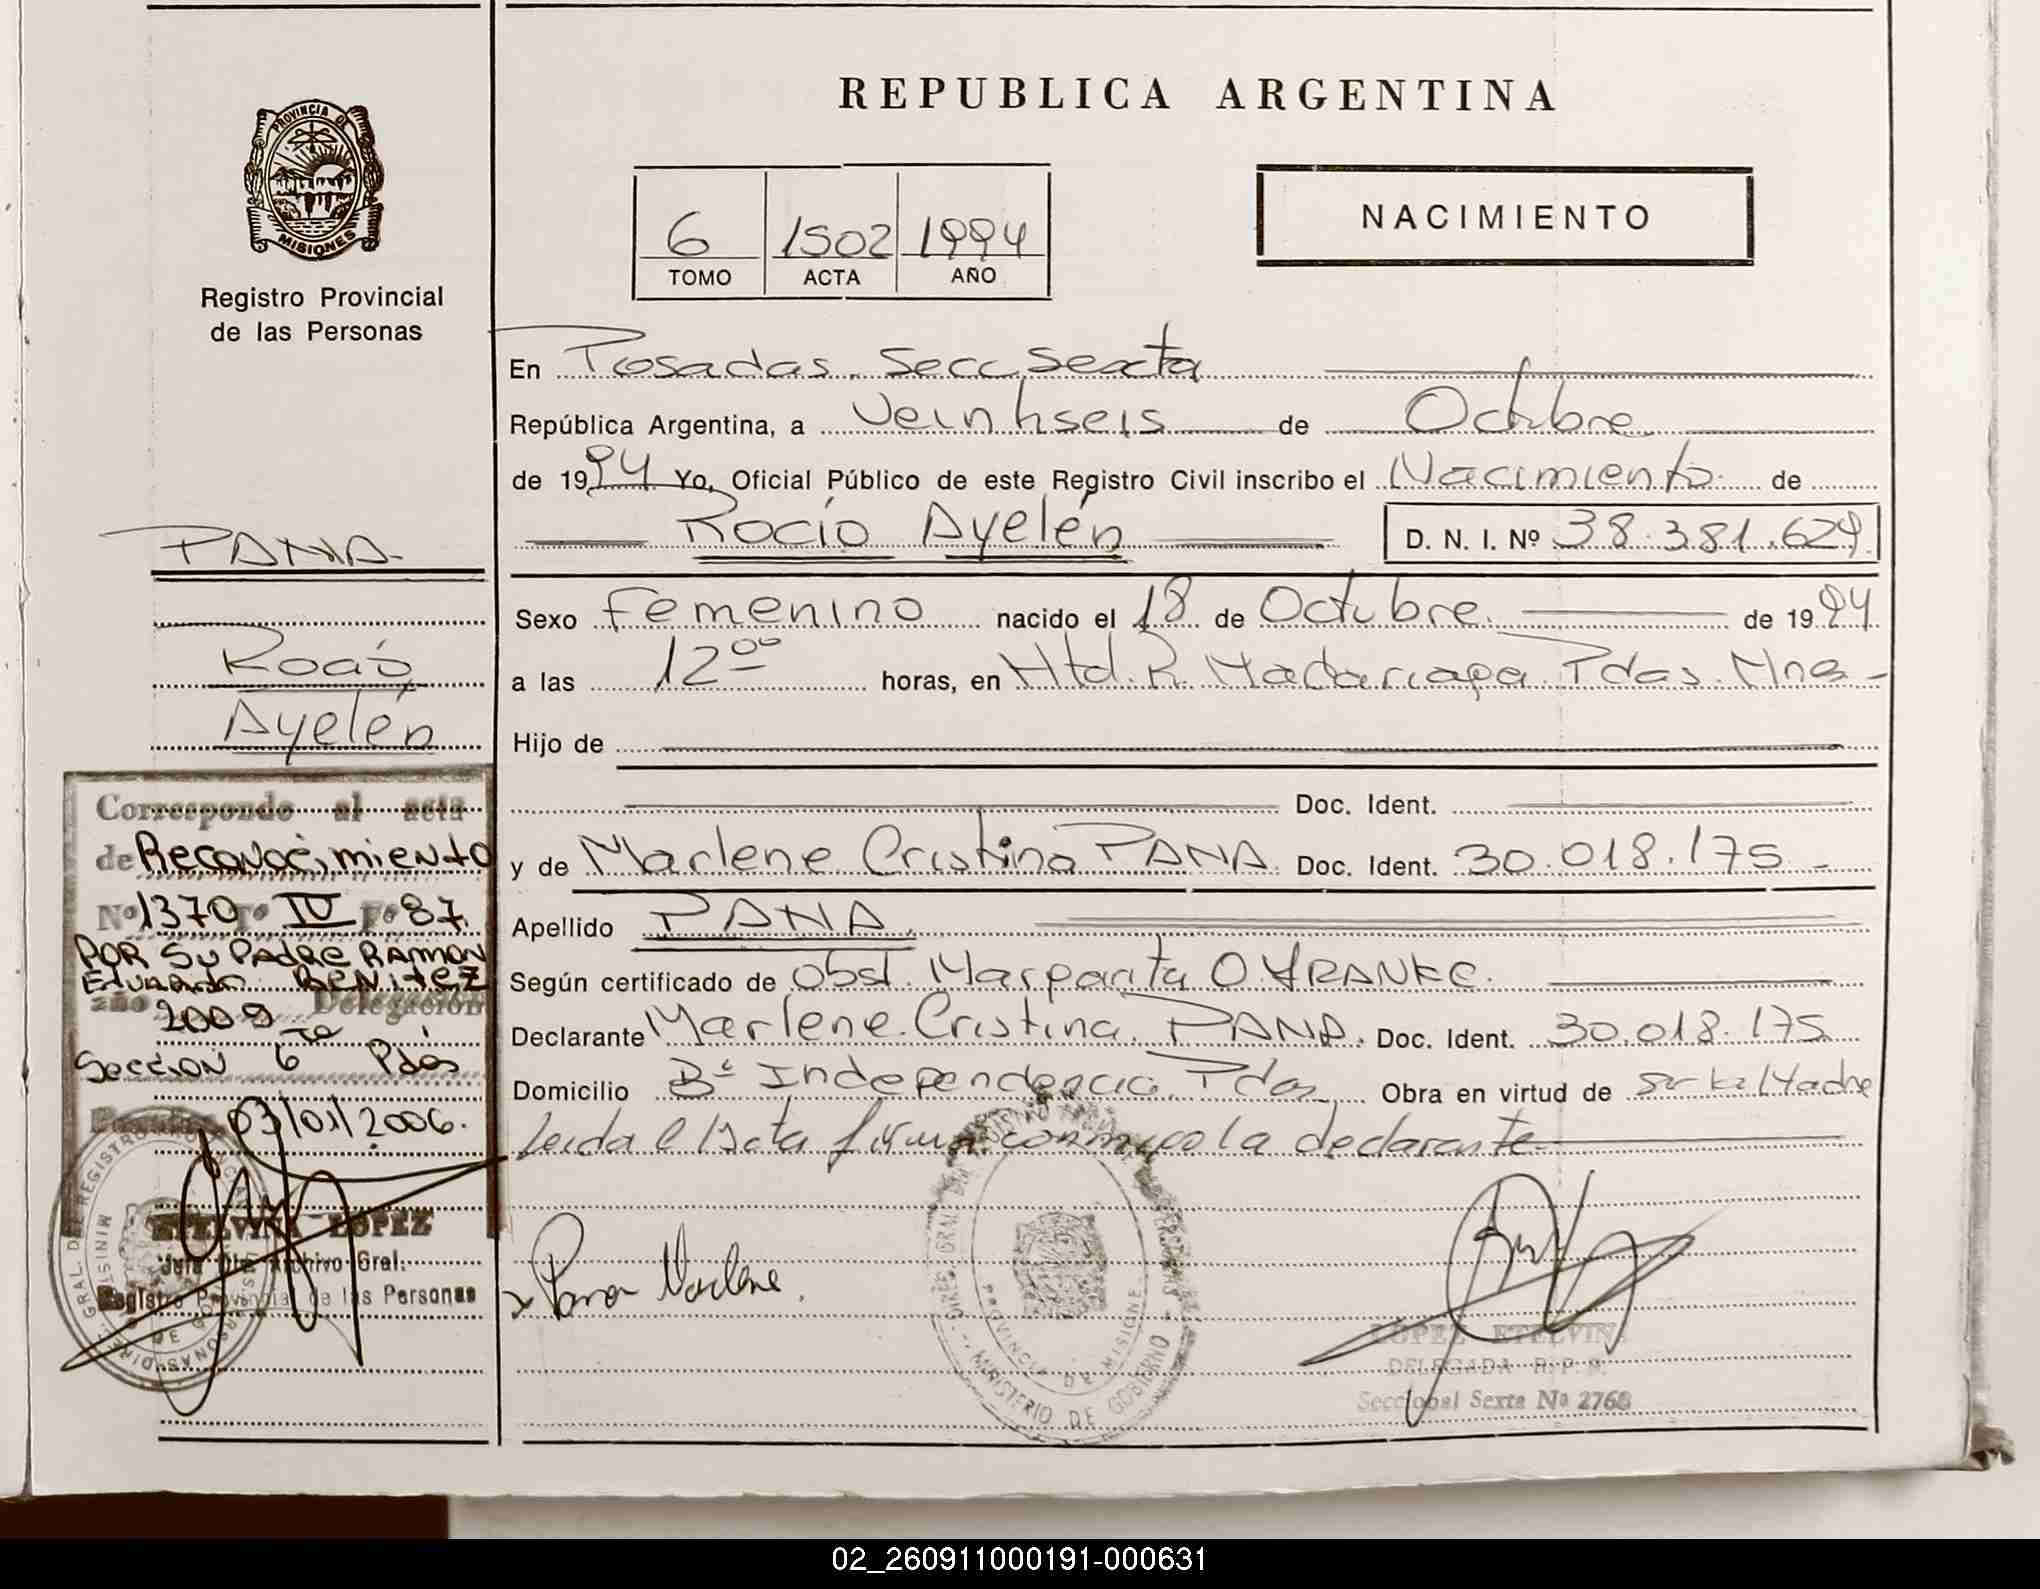 REPUBLICA ARGENTINA
PROVINCIA DE
MISIONES
Registro Provincial
de las Personas
6 1502 1994
TOMO ACTA AÑO
NACIMIENTO
En Posadas. Secc. Sexta
República Argentina, a Veintiseis de Octubre
de 1994 Yo, Oficial Público de este Registro Civil inscribo el Nacimiento de
Rocío Ayelén D. N. I. Nº 38.381.629
Sexo Femenino nacido el 18 de Octubre de 1994
a las 12⁰⁰ horas, en Htal. R. Madariaga Pdas. Mnes
Hijo de
Doc. Ident.
y de Marlene Cristina PANA. Doc. Ident. 30.018.175
Apellido PANA.
Según certificado de Obst. Margarita O. FRANKE.
Declarante Marlene Cristina PANA. Doc. Ident. 30.018.175
Domicilio Bº Independencia Pdas. Obra en virtud de ser la Madre
Leida el Acta firma conmigo la declarante
Pana Marlene.
MINISTERIO DE GOBIERNO
PROVINCIA DE MISIONES
LOPEZ ETELVINA
DELEGADA R.P.P.
Seccional Sexta Nº 2768
PANA
Rocío
Ayelén
Corresponde al acta
de Reconocimiento
Nº 1370 Tº IV Fº 87
POR SU PADRE RAMON
EDUARDO BENITEZ
año 2009 Delegación
Sección 6ta Pdas
Posadas, 03/01/2006.
ETELVINA LOPEZ
Jefa Dto. Archivo Gral.
Registro Provincial de las Personas
02_260911000191-000631